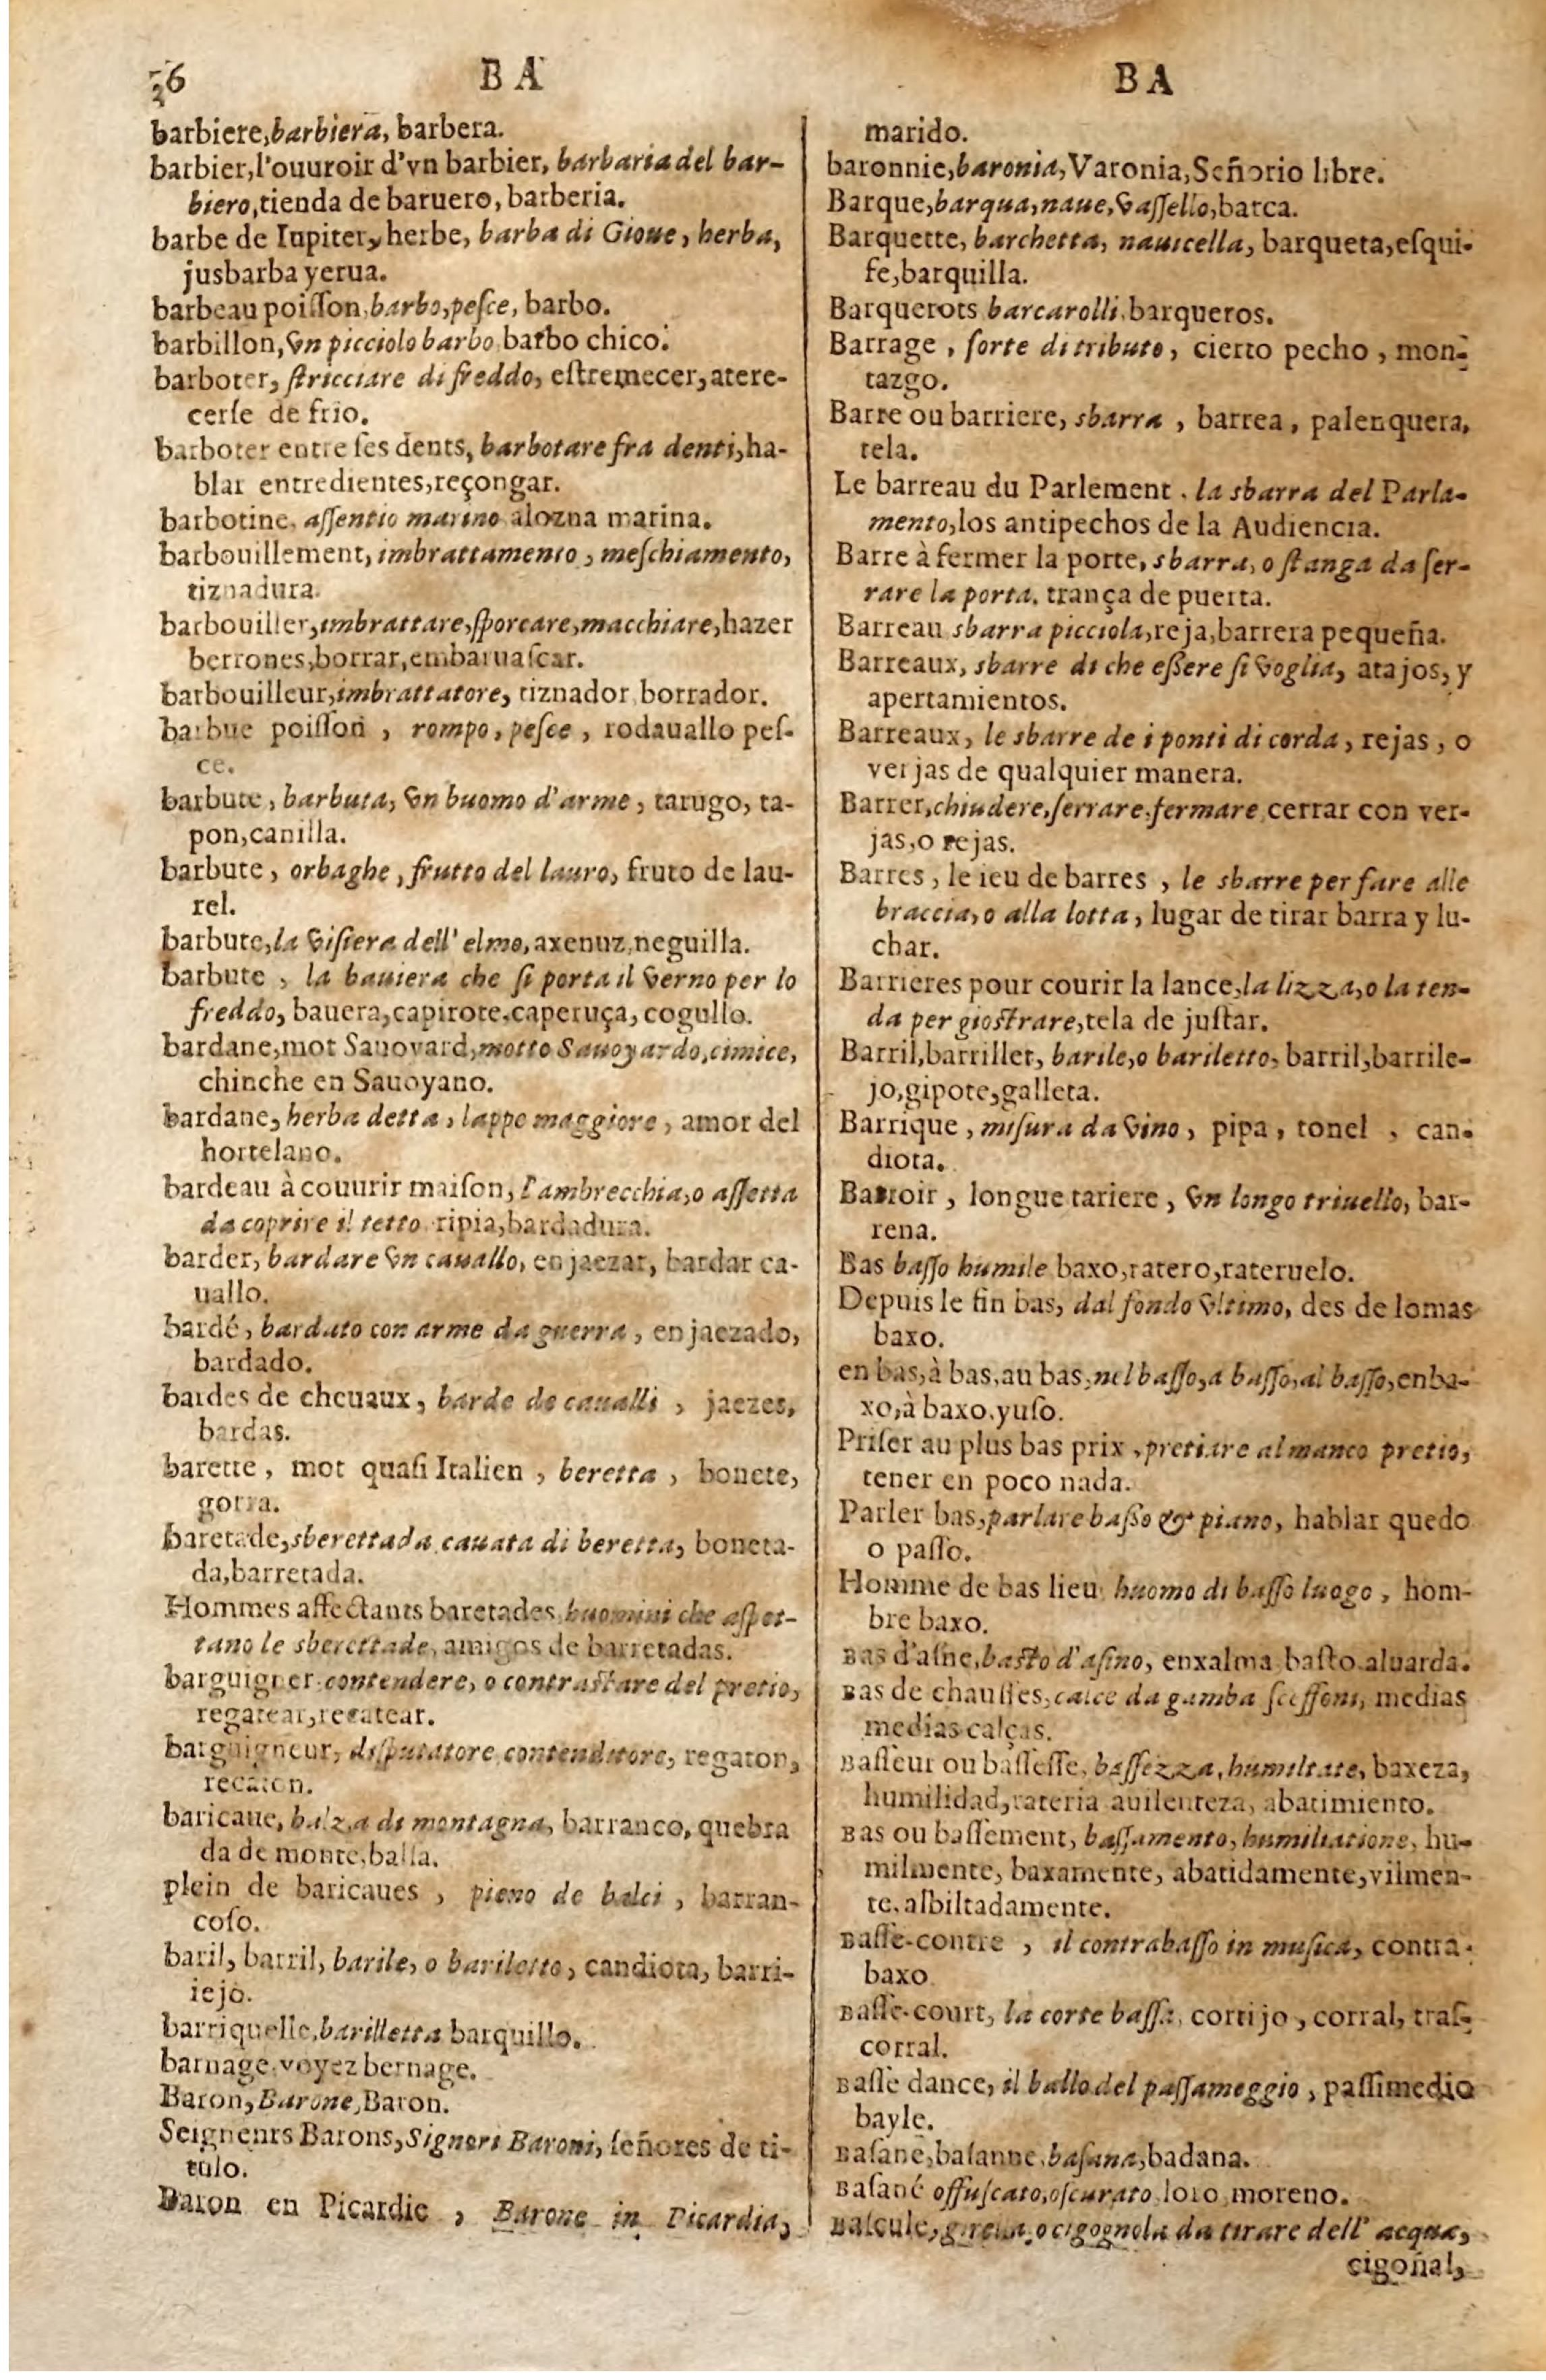 36
BA
barbiere, barbiera, barbera.
barbier, l'ouuroir d'vn barbier, barbaria del bar-
biero, tienda de baruero, barberia.
barbe de Iupiter, herbe, barba di Gioue, herba,
jusbarba yerua.
barbeau poiſſon, barbo, peſce, barbo.
barbillon, vn picciolo barbo barbo chico.
barboter, ſtricciare di freddo, eſtremecer, atere-
cerſe de frio.
barboter entre ſes dents, barbotare fra denti, ha-
blar entredientes, reçongar.
barbotine, aſſentio marino alozna marina.
barbouillement, imbrattamento, meſchiamento,
tiznadura.
barbouiller, imbrattare, ſporcare, macchiare, hazer
berrones, borrar, embaruaſcar.
barbouilleur, imbrattatore, tiznador borrador.
barbue poiſſon, rompo, peſce, rodauallo peſ-
ce.
barbute, barbuta, vn buomo d'arme, tarugo, ta-
pon, canilla.
barbute, orbaghe, frutto del lauro, fruto de lau-
rel.
barbute, la viſiera dell' elmo, axenuz, neguilla.
barbute, la bauiera che ſi porta il verno per lo
freddo, bauera, capirote, caperuça, cogullo.
bardane, mot Sauoyard, motto Sauoyardo, cimice,
chinche en Sauoyano.
bardane, herba detta, lappe maggiore, amor del
hortelano.
bardeau à couurir maiſon, l'ambrecchia, o aſſetta
da coprire il tetto ripia, bardadura.
barder, bardare vn cauallo, enjaezar, bardar ca-
uallo.
bardé, bardato con arme da guerra, enjaezado,
bardado.
bardes de cheuaux, barde de caualli, jaezes,
bardas.
barette, mot quaſi Italien, beretta, bonete,
gorra.
baretade, sberettada cauata di beretta, boneta-
da, barretada.
Hommes affectants baretades huomini che aſpet-
tano le sberettade, amigos de barretadas.
barguigner contendere, o contraſtare del pretio,
regatear, recatear.
barguigneur, diſputatore contenditore, regaton,
recaton.
baricaue, balza di montagna, barranco, quebra
da de monte, balſa.
plein de baricaues, pieno de balci, barran-
coſo.
baril, barril, barile, o bariletto, candiota, barri-
lejo.
barriquelle, barilletta barquillo.
barnage voyez bernage.
Baron, Barone, Baron.
Seigneurs Barons, Signori Baroni, ſeñores de ti-
tulo.
Baron en Picardie, Barone in Picardia,
BA
marido.
baronnie, baronia, Varonia, Señorio libre.
Barque, barqua, naue, vaſſello, barca.
Barquette, barchetta, nauicella, barqueta, eſqui-
fe, barquilla.
Barquerots barcarolli barqueros.
Barrage, ſorte di tributo, cierto pecho, mon-
tazgo.
Barre ou barriere, sbarra, barrea, palenquera,
tela.
Le barreau du Parlement, la sbarra del Parla-
mento, los antipechos de la Audiencia.
Barre à fermer la porte, sbarra, o ſtanga da ſer-
rare la porta, trança de puerta.
Barreau sbarra picciola, reja, barrera pequeña.
Barreaux, sbarre di che eſſere ſi voglia, atajos, y
apertamientos.
Barreaux, le sbarre de i ponti di corda, rejas, o
verjas de qualquier manera.
Barrer, chiudere, ſerrare, fermare cerrar con ver-
jas, o rejas.
Barres, le ieu de barres, le sbarre per fare alle
braccia, o alla lotta, lugar de tirar barra y lu-
char.
Barrieres pour courir la lance, la lizza, o la ten-
da per gioſtrare, tela de juſtar.
Barril, barrillet, barile, o bariletto, barril, barrile-
jo, gipote, galleta.
Barrique, miſura da vino, pipa, tonel, can-
diota.
Barroir, longue tariere, vn longo triuello, bar-
rena.
Bas baſſo humile baxo, ratero, rateruelo.
Depuis le fin bas, dal fondo vltimo, des de lo mas
baxo.
en bas, à bas, au bas, nel baſſo, a baſſo, al baſſo, enba-
xo, à baxo, yuſo.
Priſer au plus bas prix, pretiare al manco pretio,
tener en poco nada.
Parler bas, parlare baſſo & piano, hablar quedo
o paſſo.
Homme de bas lieu huomo di baſſo luogo, hom-
bre baxo.
Bas d'aſne, baſto d'aſino, enxalma baſto aluarda.
Bas de chauſſes, calce da gamba ſciſſoni, medias
medias calças.
Baſſeur ou baſſeſſe, baſſezza, humiltate, baxeza,
humilidad, rateria auilenteza, abatimiento.
Bas ou baſſement, baſſamento, humiliatione, hu-
milmente, baxamente, abatidamente, vilmen-
te, albiltadamente.
Baſſe-contre, il contrabaſſo in muſica, contra-
baxo
Baſſe-court, la corte baſſa, cortijo, corral, traſ-
corral.
Baſſe dance, il ballo del paſſameggio, paſſimedio
bayle.
Baſane, baſanne, baſana, badana.
Baſané offuſcato, oſcurato loro moreno.
Baſcule, girella, o cigognola da tirare dell' acqua,
cigoñal,